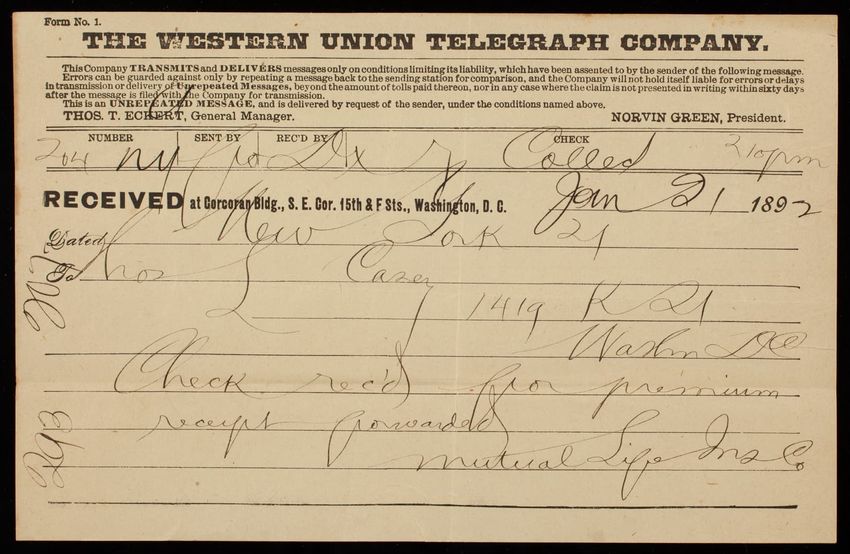 Form No. 1.
THE WESTERN UNION TELEGRAPH COMPANY.
This Company TRANSMITS and DELIVERS messages only on conditions limiting its liability, which have been assented to by the sender of the following message.
Errors can be guarded against only by repeating a message back to the sending station for comparison, and the Company will not hold itself liable for errors or delays
in transmission or delivery of Unrepeated Messages, beyond the amount of tolls paid thereon, nor in any case where the claim is not presented in writing within sixty days
after the message is filed with the Company for transmission.
This is an UNREPEATED MESSAGE, and is delivered by request of the sender, under the conditions named above.
THOS. T. ECKERT, General Manager. NORVIN GREEN, President.
NUMBER SENT BY REC'D BY CHECK
204 ny Dx 7 Colled 210pm
RECEIVED at Corcoran Bldg., S. E. Cor. 15th & F Sts., Washington, D. C. Jan 21 1892
Dated New York 21
To Thos L Casey
1419 K St
Washn DC
Check rec'd for premium
receipt forwarded
Mutual Life Ins Co